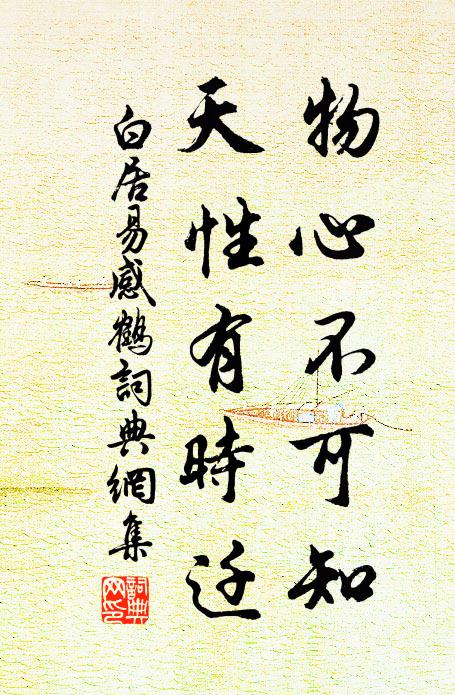 物心不可知
天性有時迁
白居易感鶴詞典網集
詞典网印